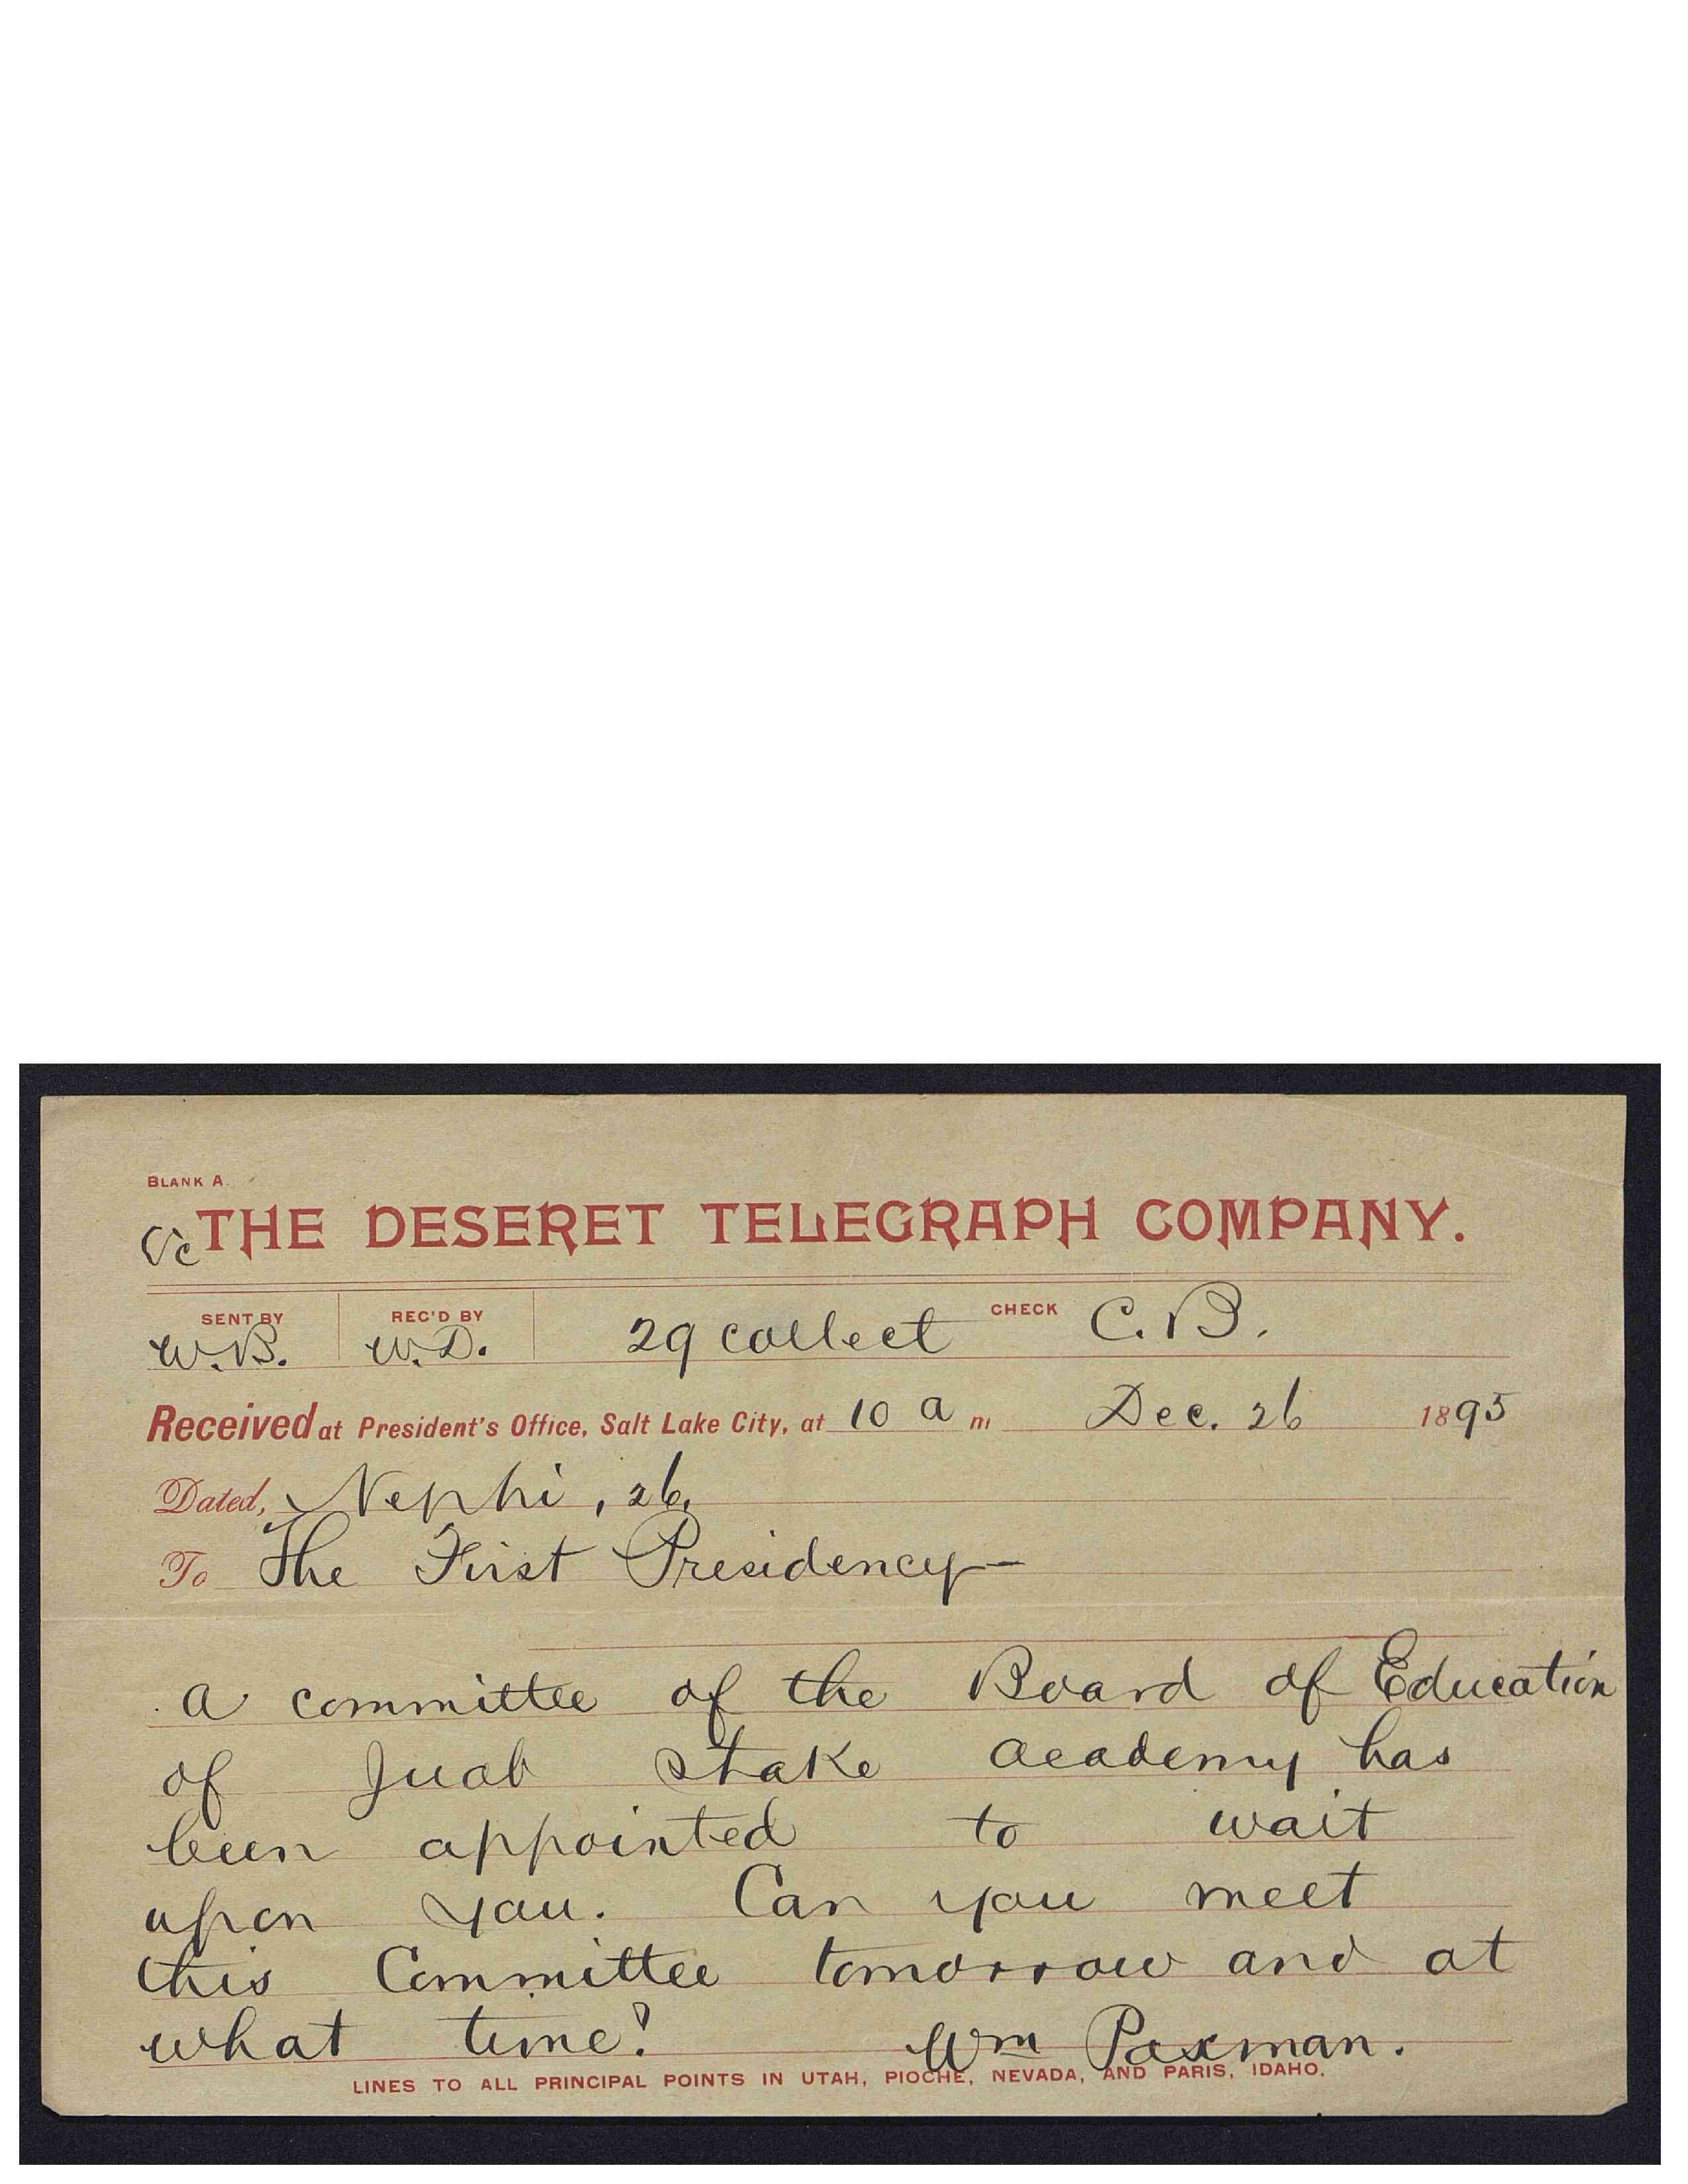 BLANK A.
THE DESERET TELEGRAPH COMPANY.
SENT BY REC'D BY CHECK
W.B. W.D. 29 collect C.B.
Received at President's Office, Salt Lake City, at 10 a m Dec. 26 1895
Dated, Nephi, 26.
To The First Presidency—
A committee of the Board of Education
of Juab Stake Academy has
been appointed to wait
upon you. Can you meet
this Committee tomorrow and at
what time? Wm Paxman.
LINES TO ALL PRINCIPAL POINTS IN UTAH, PIOCHE, NEVADA, AND PARIS, IDAHO.